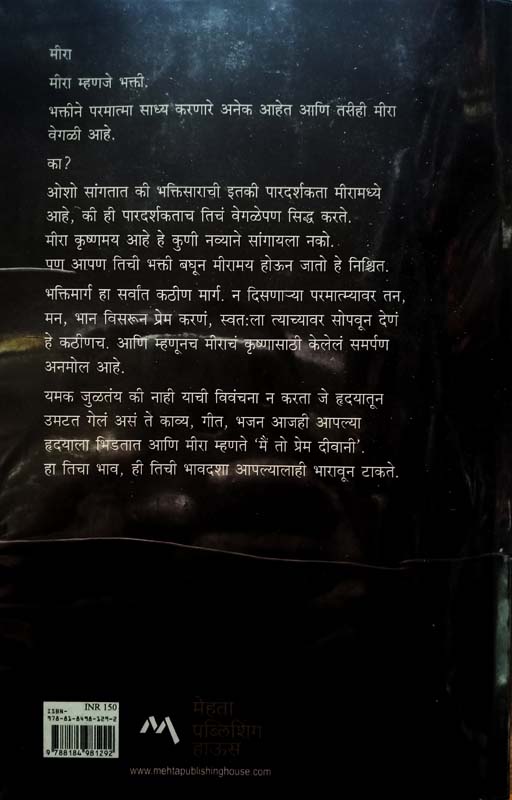 मीरा
मीरा म्हणजे भक्ती.
भक्तीने परमात्मा साध्य करणारे अनेक आहेत आणि तरीही मीरा
वेगळी आहे.
का?
ओशो सांगतात की भक्तिसाराची इतकी पारदर्शकता मीरामध्ये
आहे, की ही पारदर्शकताच तिचं वेगळेपण सिद्ध करते.
मीरा कृष्णमय आहे हे कुणी नव्याने सांगायला नको.
पण आपण तिची भक्ती बघून मीरामय होऊन जातो हे निश्चित.
भक्तिमार्ग हा सर्वांत कठीण मार्ग. न दिसणाऱ्या परमात्म्यावर तन,
मन, भान विसरून प्रेम करणं, स्वतःला त्याच्यावर सोपवून देणं
हे कठीणच. आणि म्हणूनच मीराचं कृष्णासाठी केलेलं समर्पण
अनमोल आहे.
यमक जुळतंय की नाही याची विवंचना न करता जे हृदयातून
उमटत गेलं असं ते काव्य, गीत, भजन आजही आपल्या
हृदयाला भिडतात आणि मीरा म्हणते ‘मैं तो प्रेम दीवानी’.
हा तिचा भाव, ही तिची भावदशा आपल्यालाही भारावून टाकते.
ISBN-
INR 150
978-81-8498-129-2
9 788184 981292
मेहता
पब्लिशिंग
हाऊस
www.mehtapublishinghouse.com